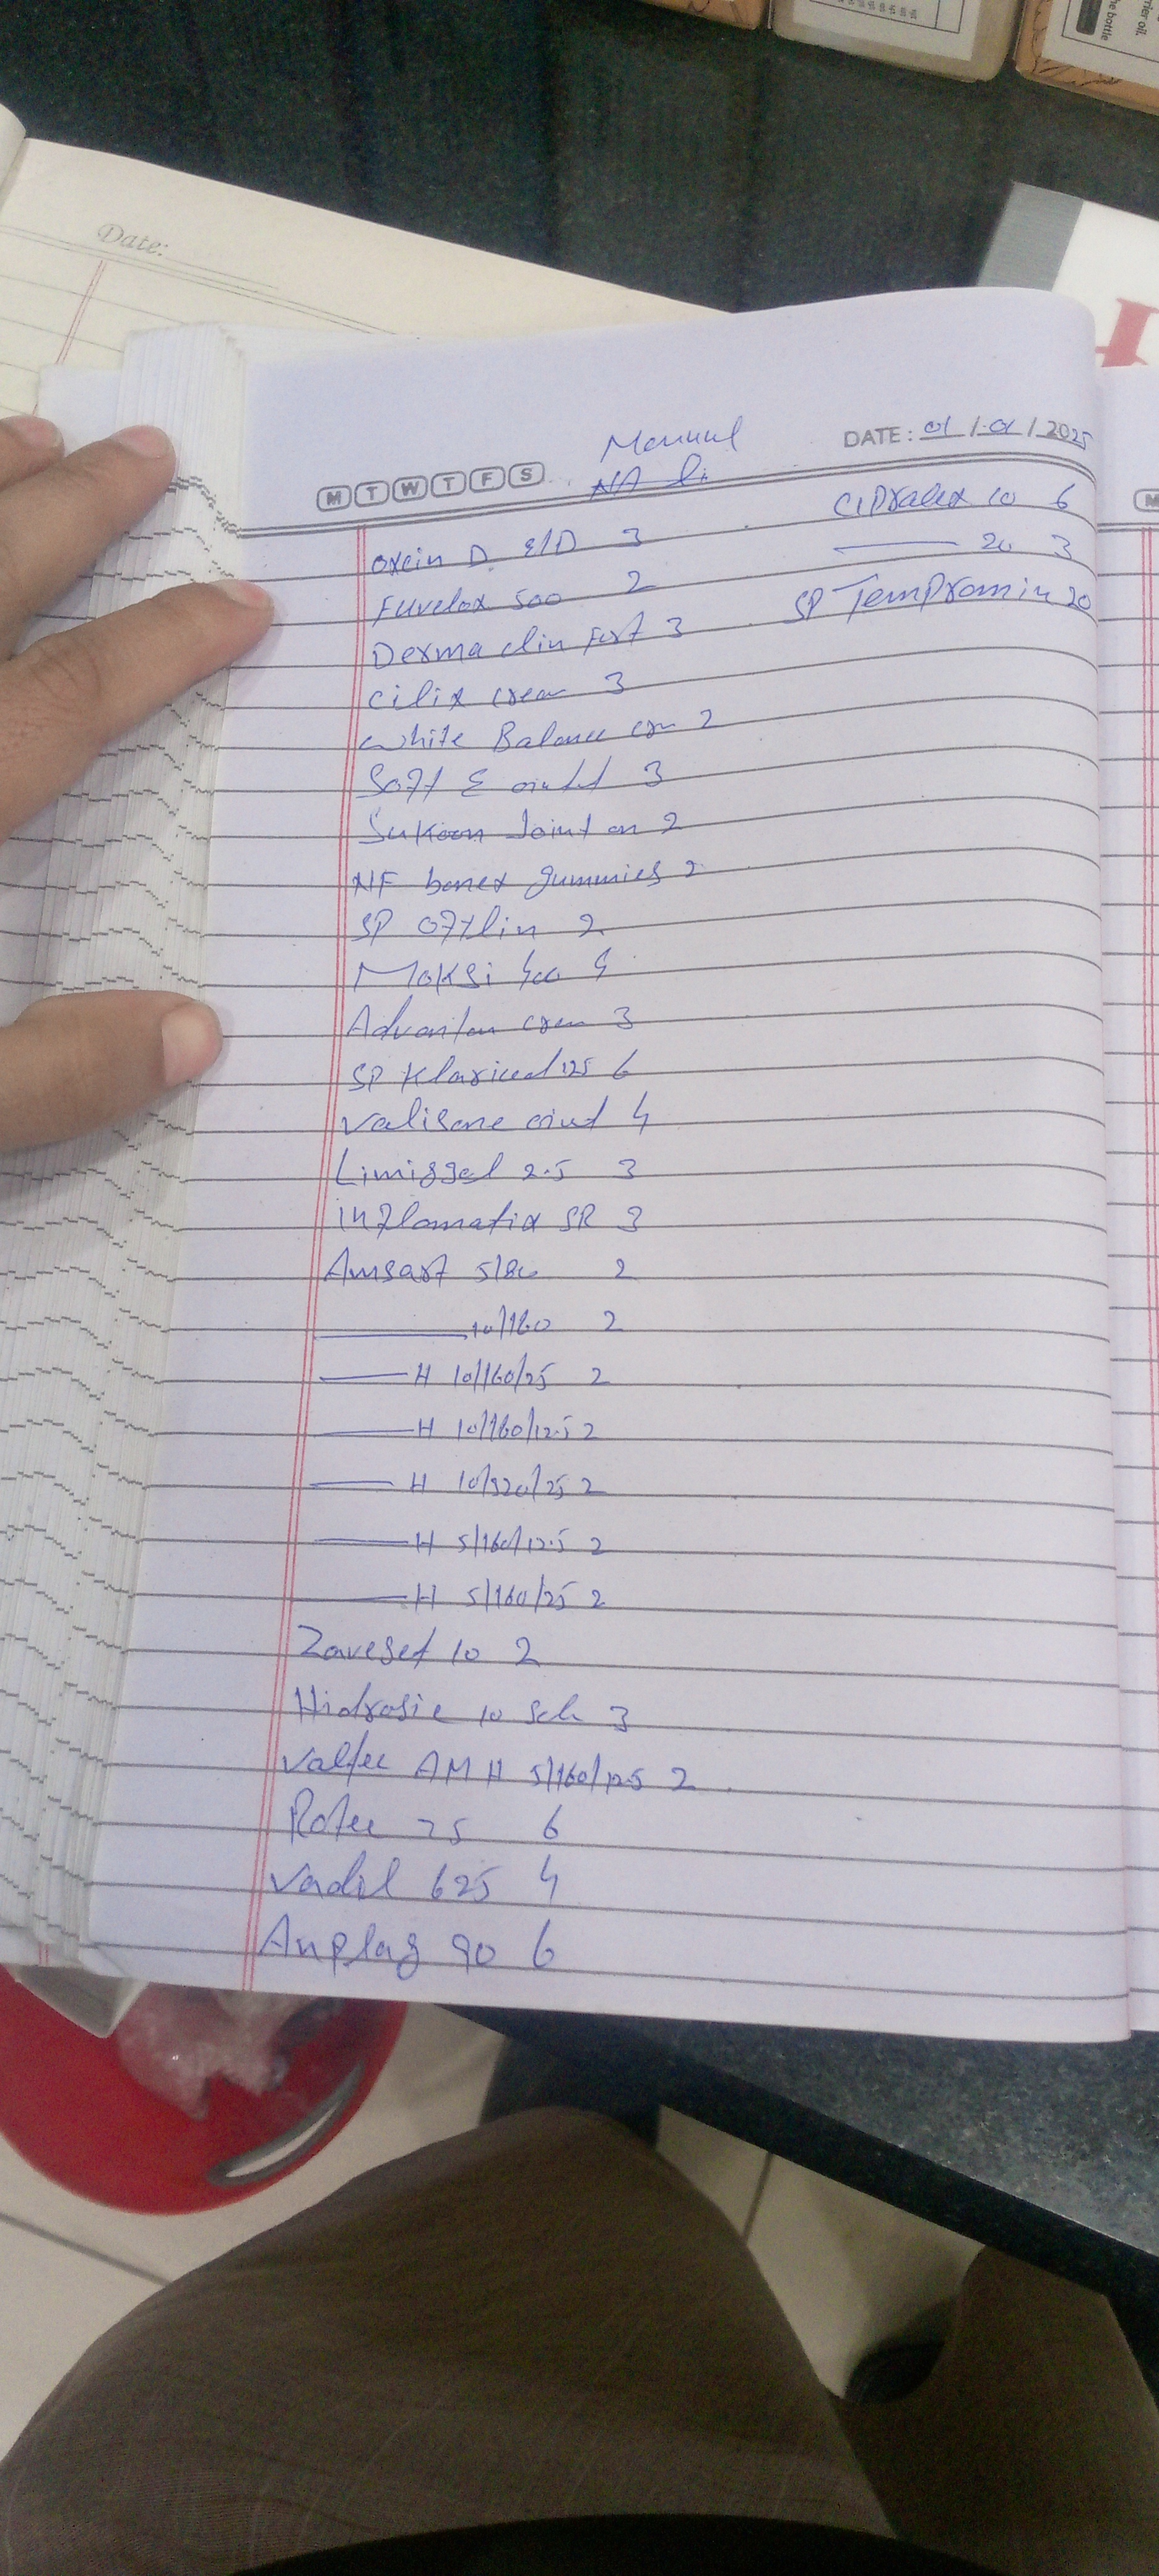 he bottle
rier oil.
Date:
Manual
DATE: 01/01/2025
M T W T F S
NA li
oxcin D E/D 3
Fuvelox 500 2
Derma clin fort 3
cilix cream 3
white Balance crm 2
Soft E ointt 3
Sukoon Joint on 2
NF bonex gummies 2
SP Oftlin 2
Moksi 400 4
Advantan crem 3
SP Klaricid 125 6
valisone oint 4
Limiggel 2.5 3
inflamatix SR 3
Amsart 5/80 2
———— 10/160 2
——— H 10/160/25 2
——— H 10/160/12.5 2
——— H 10/320/25 2
——— H 5/160/12.5 2
——— H 5/160/25 2
Zaveget 10 2
Hidrasic 10 Sch 3
valtec AM H 5/160/12.5 2
Rotec 75 6
vadil 625 4
Anplag 90 6
cipralex 10 6
———— 20 3
SP Tempramin 20